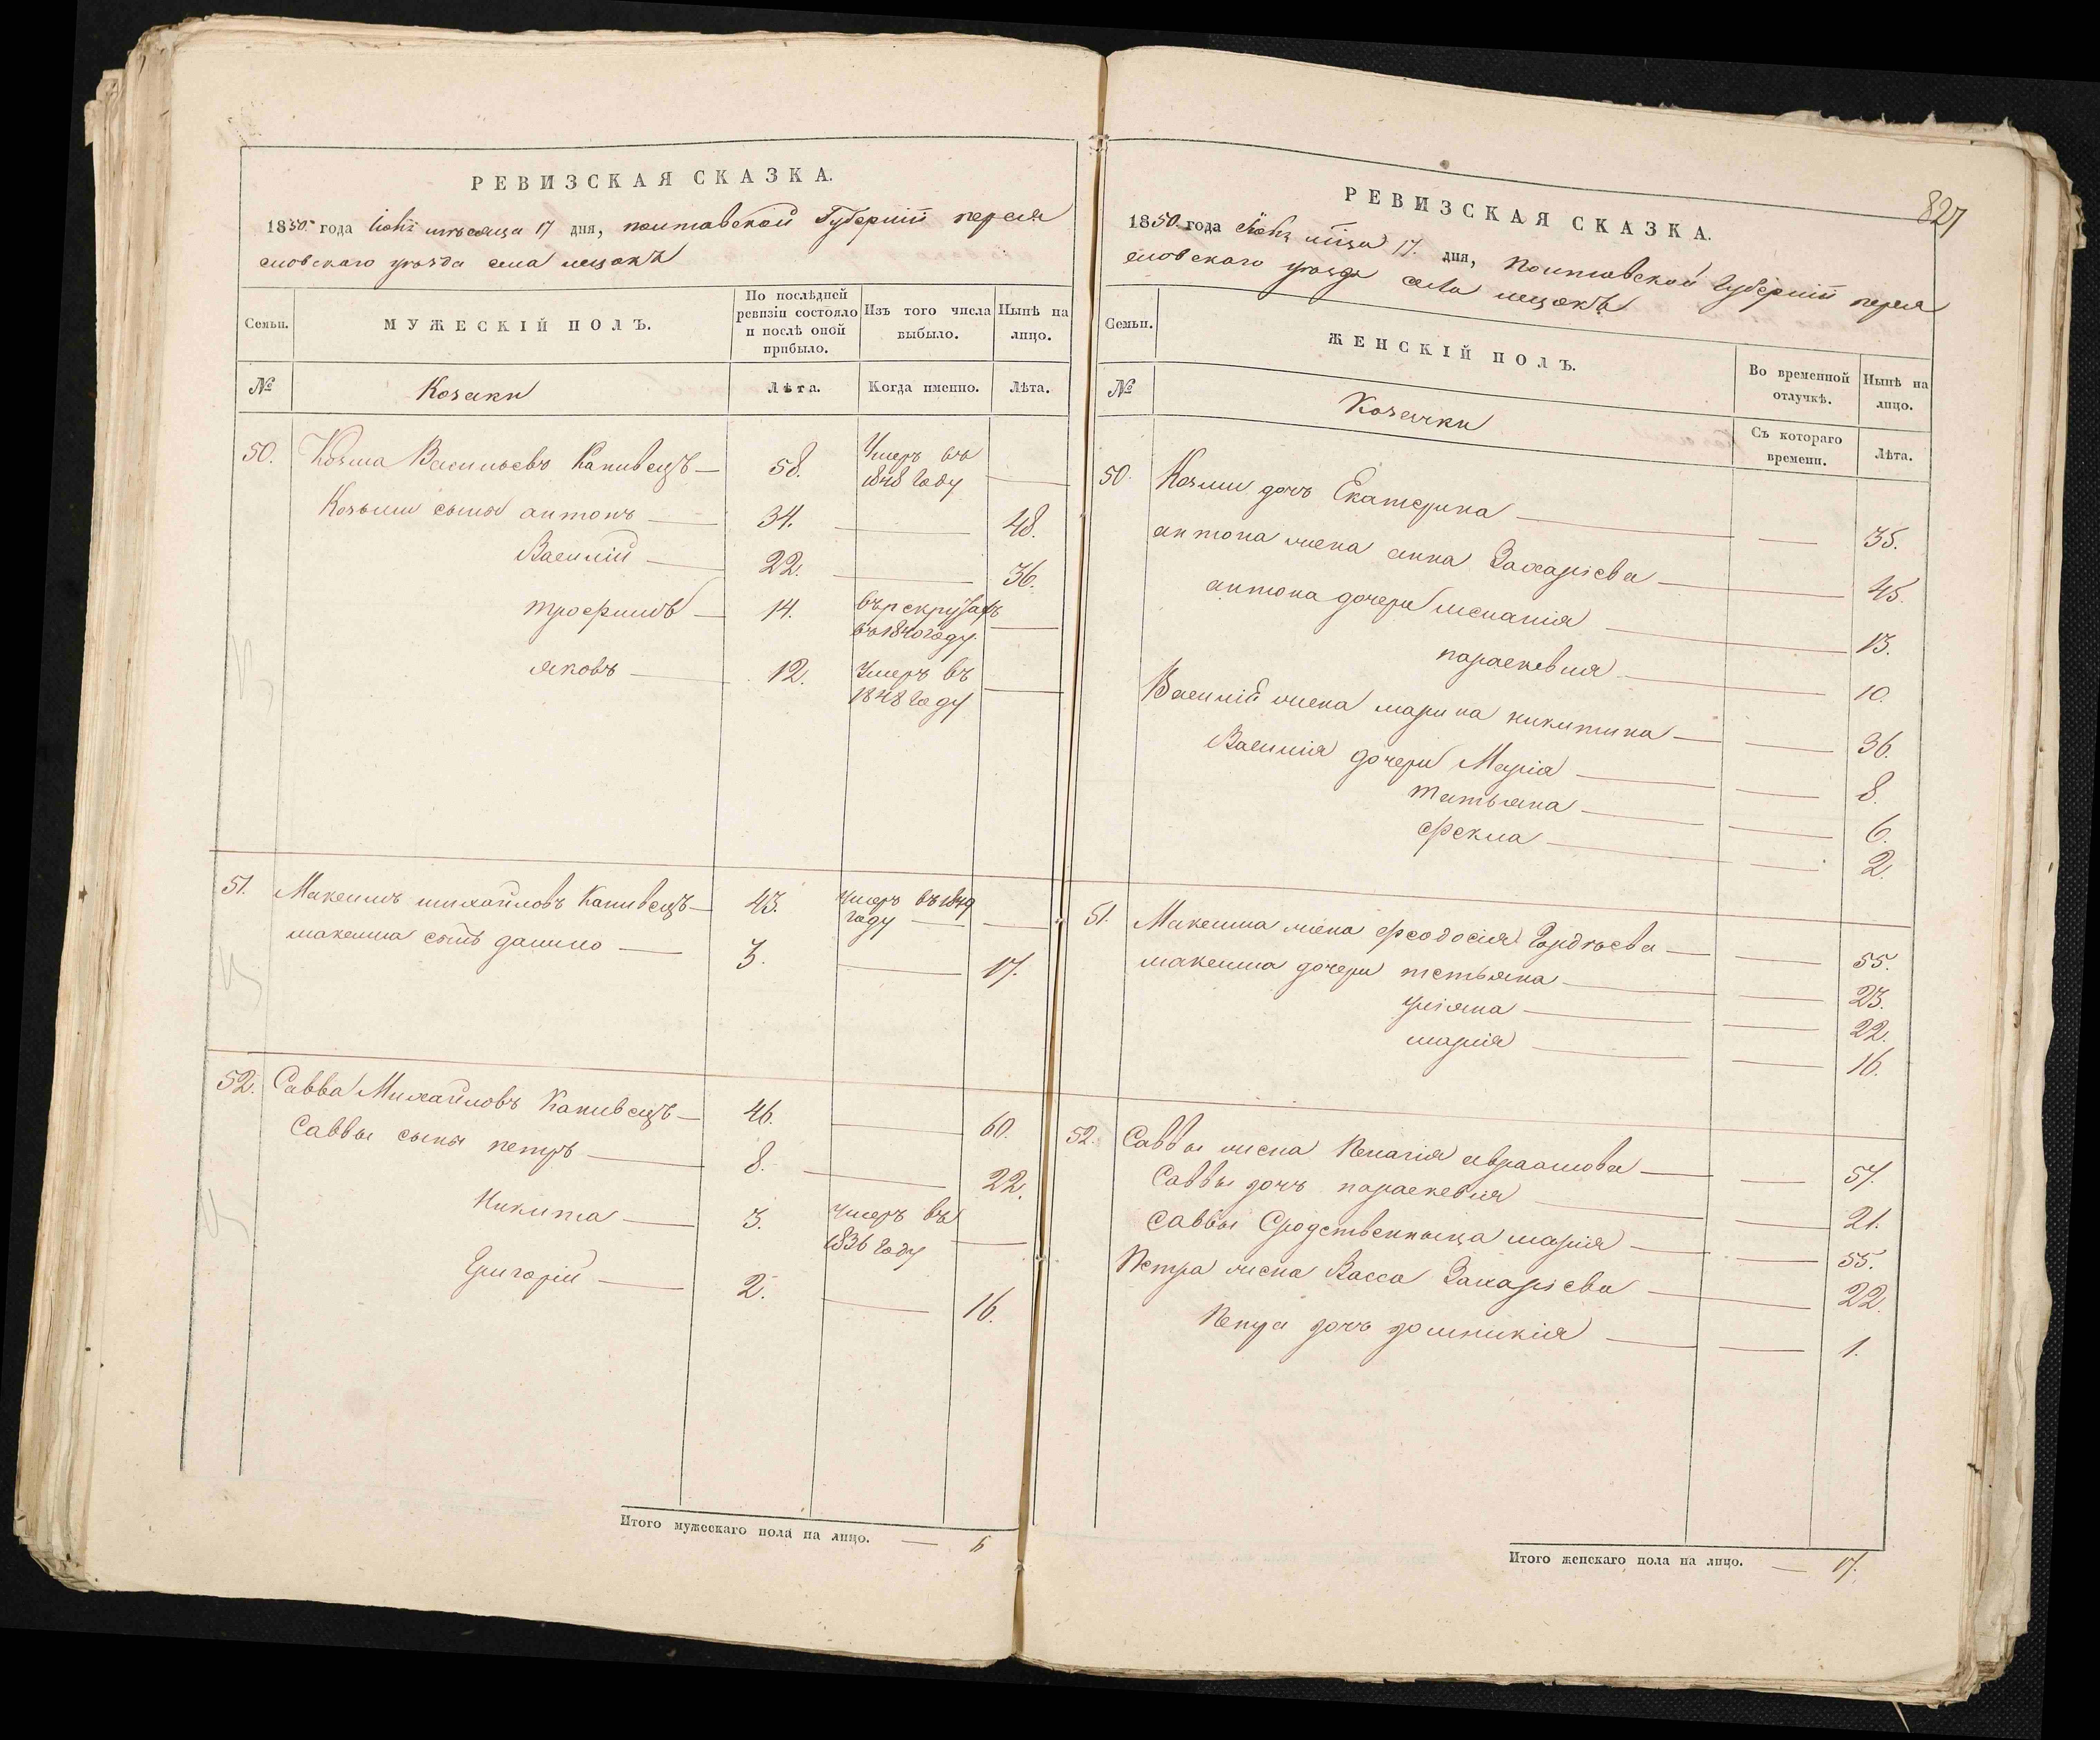 РЕВИЗСКАЯ СКАЗКА.
1850 года Іюнѣ мѣсяца 17 дня, полтавской Губерніи переяс
словскаго уѣзда села
Семьи.
МУЖЕСКІЙ ПОЛЪ.
По послѣдней ревизіи состояло и послѣ оной прибыло.
Изъ того числа выбыло.
Нынѣ на лицо.
№
Козаки
Лѣта.
Когда именно.
Лѣта.
50. Козьма Васильевъ Капивецъ — 58. Умеръ въ 1848 Году —
Козьмы сыны антонъ — 34. — 48.
Василій — 22. — 36.
трофимъ — 14. въ рекрутахъ въ 1840 году. —
яковъ — 12. Умеръ въ 1848 Году —
51. Максимъ михайловъ Капивецъ — 43. умеръ въ 1849 году —
максима сынъ данило — 3. — 17.
52. Савва Михайловъ Капивецъ — 46. — 60.
Саввы сыны петръ — 8. — 22.
Никита — 3. Умеръ въ 1836 Году —
Григорій — 2. — 16.
Итого мужескаго пола на лицо. — 6
827
РЕВИЗСКАЯ СКАЗКА.
1850 года Іюнѣ мѣца 17. дня, Полтавской Губерніи переяс
словскаго уѣзда села
Семьи.
ЖЕНСКІЙ ПОЛЪ.
Во временной отлучкѣ.
Нынѣ на лицо.
№
Козачки
Съ котораго времени.
Лѣта.
50. Козьмы дочь Екатерина — — 35.
антона жена анна Захаріева — 45.
антона дочери меланія — 13.
параскевия — 10.
Василій жена марина никитина — — 36.
Василія дочери Марія — — 8.
татьяна — — 6.
фекла — — 2.
51. Максима жена феодосия Гордѣева — — 55.
максима дочери татьяна — — 23.
уліяна — — 22.
марія — — 16.
52. Саввы жена Пелагія авраамова — — 57.
Саввы дочь параскевия — — 21.
Саввы Сродственныца марія — — 55.
Петра жена Васса Захаріева — 22.
Петра дочь домникія — — 1.
Итого женскаго пола на лицо. — 17.